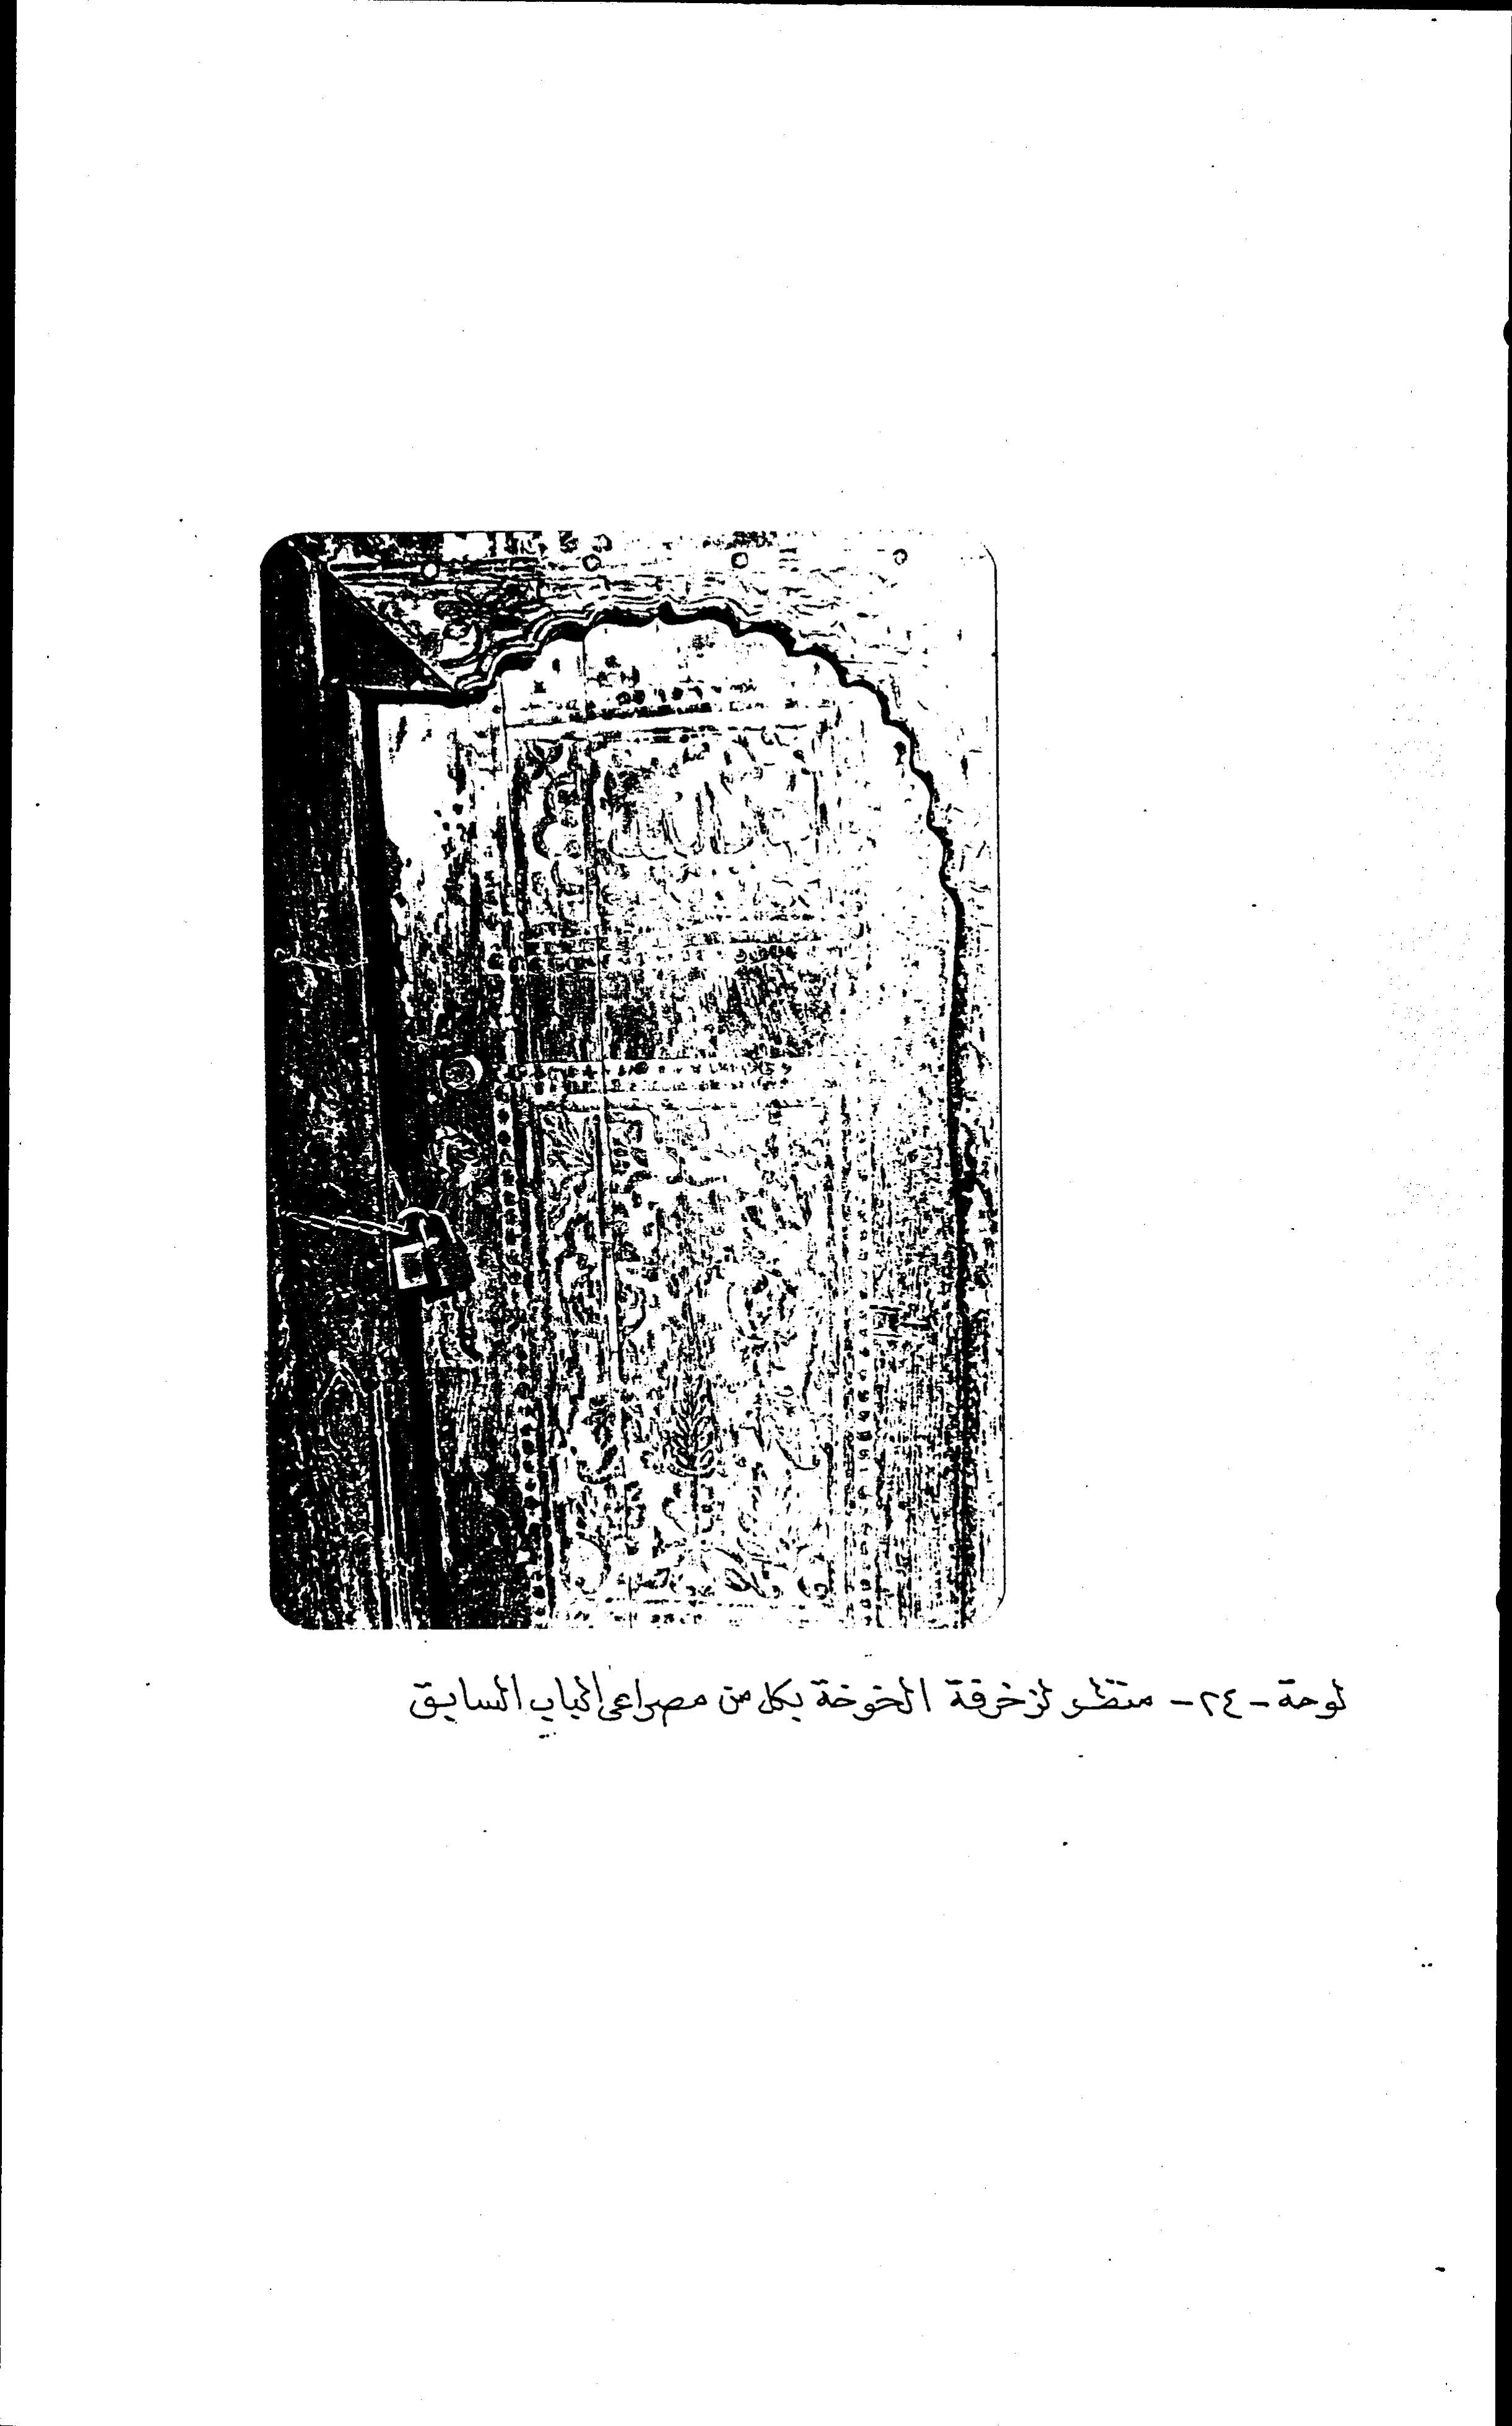 لوحة - ٢٤ - منظر لزخرفة الخوخة بكل من مصراعى الباب السابق